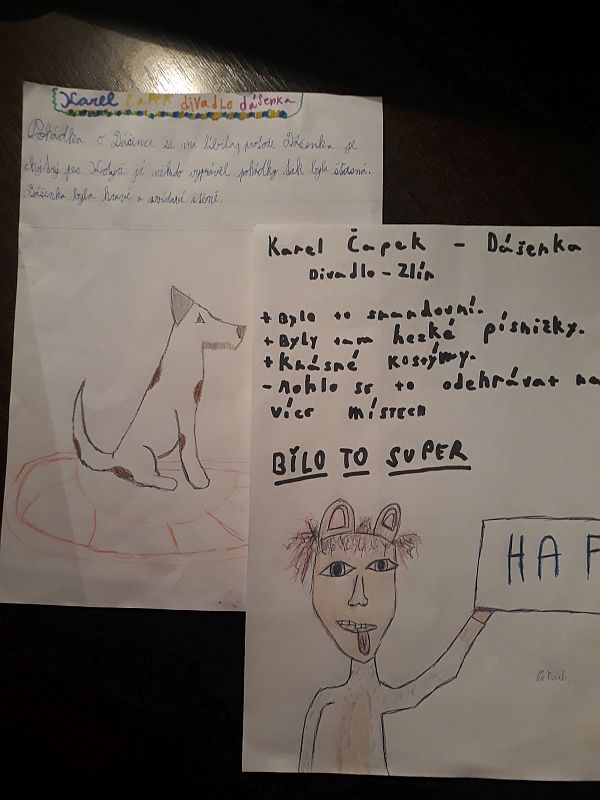 Karel Čapek divadlo dášenka
Pohádka o Dášence se mi líbila protože Dášenka je
chytrý pes. Když jí někdo vyprávěl pohádky tak byla šťastná.
Dášenka byla hravé a zvídavé štěně.
Karel Čapek - Dášenka
Divadlo - Zlín
+ Bylo to srandovní.
+ Byly tam hezké písničky.
+ Krásné kostýmy.
- Mohlo se to odehrávat na
více místech
BÍLO TO SUPER
HAF